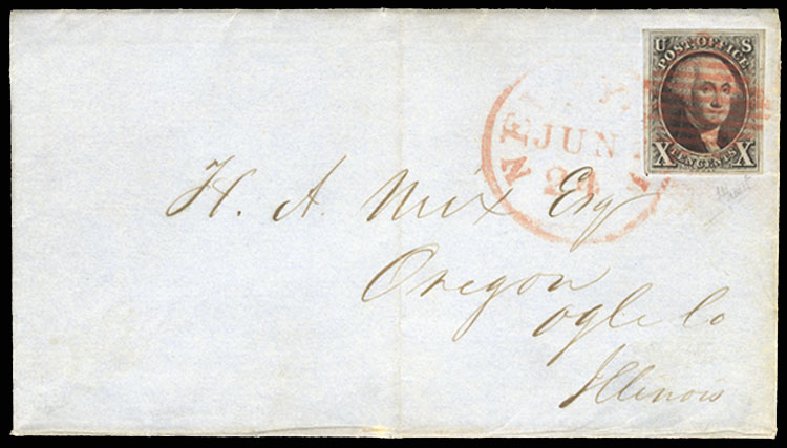 U S
POST OFFICE
X TEN CENTS X
NEW
JUN
24
H. A. Nix Esq
Oregon
Ogle Co
Illinois